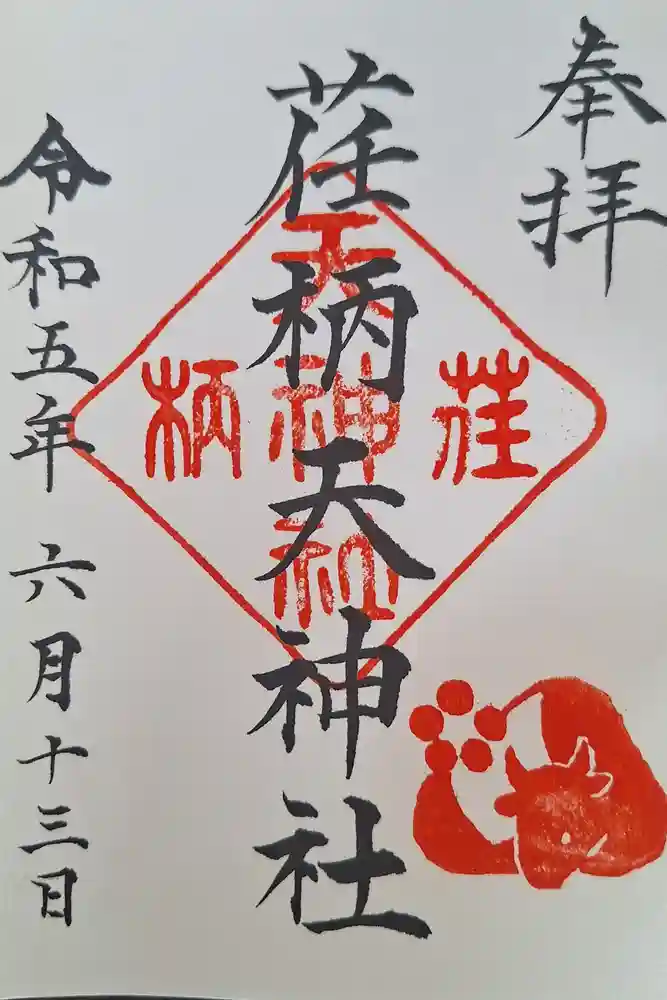 奉拝
荏柄天神社
荏柄天神社
令和五年 六月十三日